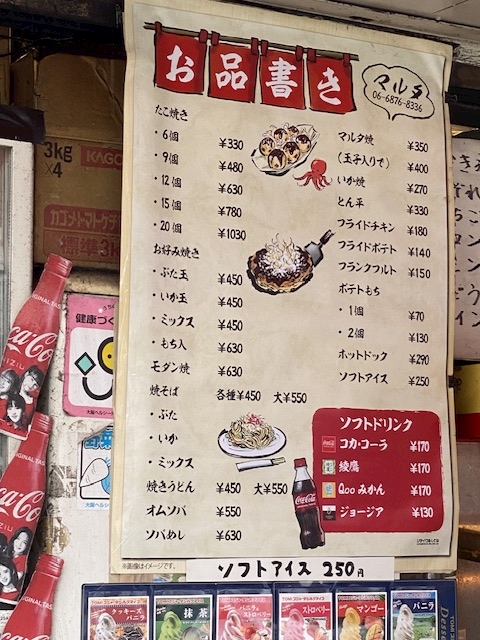 お品書き
マルタ
06-6876-8336
たこ焼き
・6個 ¥330
・9個 ¥480
・12個 ¥630
・15個 ¥780
・20個 ¥1030
お好み焼き
・ぶた玉 ¥450
・いか玉 ¥450
・ミックス ¥450
・もち入 ¥630
モダン焼 ¥630
焼そば 各種¥450 大¥550
・ぶた
・いか
・ミックス
焼きうどん ¥450 大¥550
オムソバ ¥550
ソバめし ¥630
マルタ焼 ¥350
(玉子入りで) ¥400
いか焼 ¥270
とん平 ¥330
フライドチキン ¥180
フライドポテト ¥140
フランクフルト ¥150
ポテトもち
・1個 ¥70
・2個 ¥130
ホットドック ¥290
ソフトアイス ¥250
ソフトドリンク
コカ・コーラ ¥170
綾鷹 ¥170
Qoo みかん ¥170
ジョージア ¥130
※画像はイメージです。
ソフトアイス 250円
クッキーズバニラ
抹茶
バニラ&ストロベリー
ストロベリー
マンゴー
バニラ
Dessert
3kg
×4
KAGO
カゴメトマトケチ
標準3k
健康づく
Coca-Co
Coca-Co